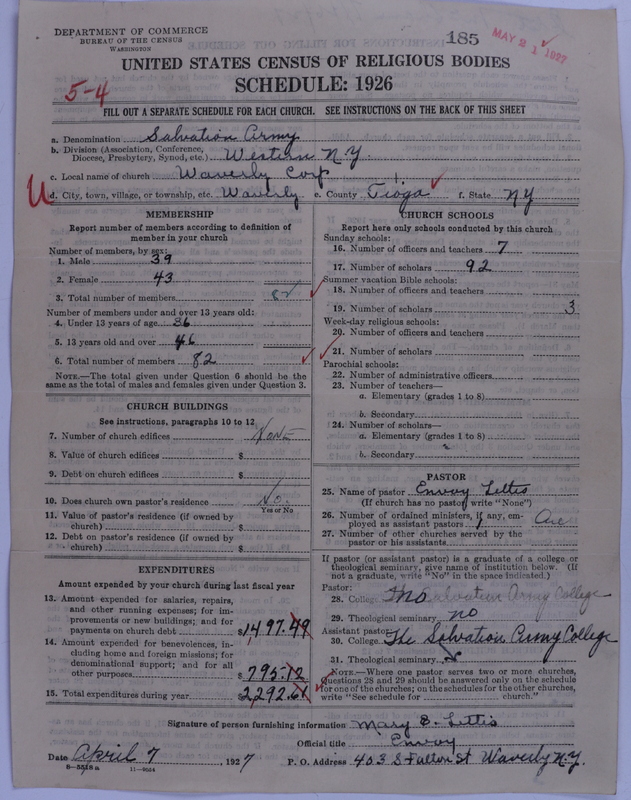 DEPARTMENT OF COMMERCE
BUREAU OF THE CENSUS
WASHINGTON
185
MAY 21 1927
UNITED STATES CENSUS OF RELIGIOUS BODIES
SCHEDULE: 1926
5-4
FILL OUT A SEPARATE SCHEDULE FOR EACH CHURCH. SEE INSTRUCTIONS ON THE BACK OF THIS SHEET
a. Denomination Salvation Army
b. Division (Association, Conference, Diocese, Presbytery, Synod, etc.) Western N.Y.
c. Local name of church Waverly Corp
U d. City, town, village, or township, etc. Waverly e. County Tioga f. State N Y
MEMBERSHIP
Report number of members according to definition of
member in your church
Number of members, by sex:
1. Male 39
2. Female 43
3. Total number of members 82
Number of members under and over 13 years old:
4. Under 13 years of age 36
5. 13 years old and over 46
6. Total number of members 82
NOTE.—The total given under Question 6 should be
same as the total of males and females given under Question 3.
CHURCH BUILDINGS
See instructions, paragraphs 10 to 12
7. Number of church edifices None
8. Value of church edifices $
9. Debt on church edifices $
10. Does church own pastor's residence No.
Yes or No
11. Value of pastor's residence (if owned by
church) $
12. Debt on pastor's residence (if owned by
church) $
EXPENDITURES
Amount expended by your church during last fiscal year
13. Amount expended for salaries, repairs,
and other running expenses; for im-
provements or new buildings; and for
payments on church debt $1497.49
14. Amount expended for benevolences, in-
cluding home and foreign missions; for
denominational support; and for all
other purposes $795.12
15. Total expenditures during year $2,292.61
CHURCH SCHOOLS
Report here only schools conducted by this church
Sunday schools:
16. Number of officers and teachers 7
17. Number of scholars 92
Summer vacation Bible schools:
18. Number of officers and teachers
19. Number of scholars 3
Week-day religious schools:
20. Number of officers and teachers
21. Number of scholars
Parochial schools:
22. Number of administrative officers
23. Number of teachers—
a. Elementary (grades 1 to 8)
b. Secondary
24. Number of scholars—
a. Elementary (grades 1 to 8)
b. Secondary
PASTOR
25. Name of pastor Envoy Lettis
(If church has no pastor write "None")
26. Number of ordained ministers, if any, em-
ployed as assistant pastors 1 One
27. Number of other churches served by the
pastor or his assistants
If pastor (or assistant pastor) is a graduate of a college or
theological seminary, give name of institution below. (If
not a graduate, write "No" in the space indicated.)
Pastor:
28. College No Salvation Army College
29. Theological seminary no
Assistant pastor:
30. College The Salvation Army College
31. Theological seminary
NOTE.—Where one pastor serves two or more churches,
Questions 28 and 29 should be answered only on the schedule
for one of the churches; on the schedules for the other churches,
write "See schedule for church."
Signature of person furnishing information Mary E. Lettis
Official title Envoy
Date April 7, 1927
P. O. Address 403 S Fulton St Waverly N.Y.
8-5518a 11-9604